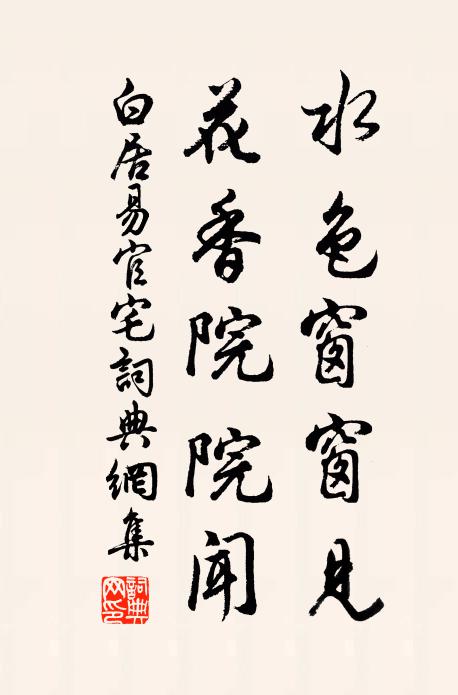 水色窗窗見
花香院院聞
白居易官宅詞典網集
詞典网印